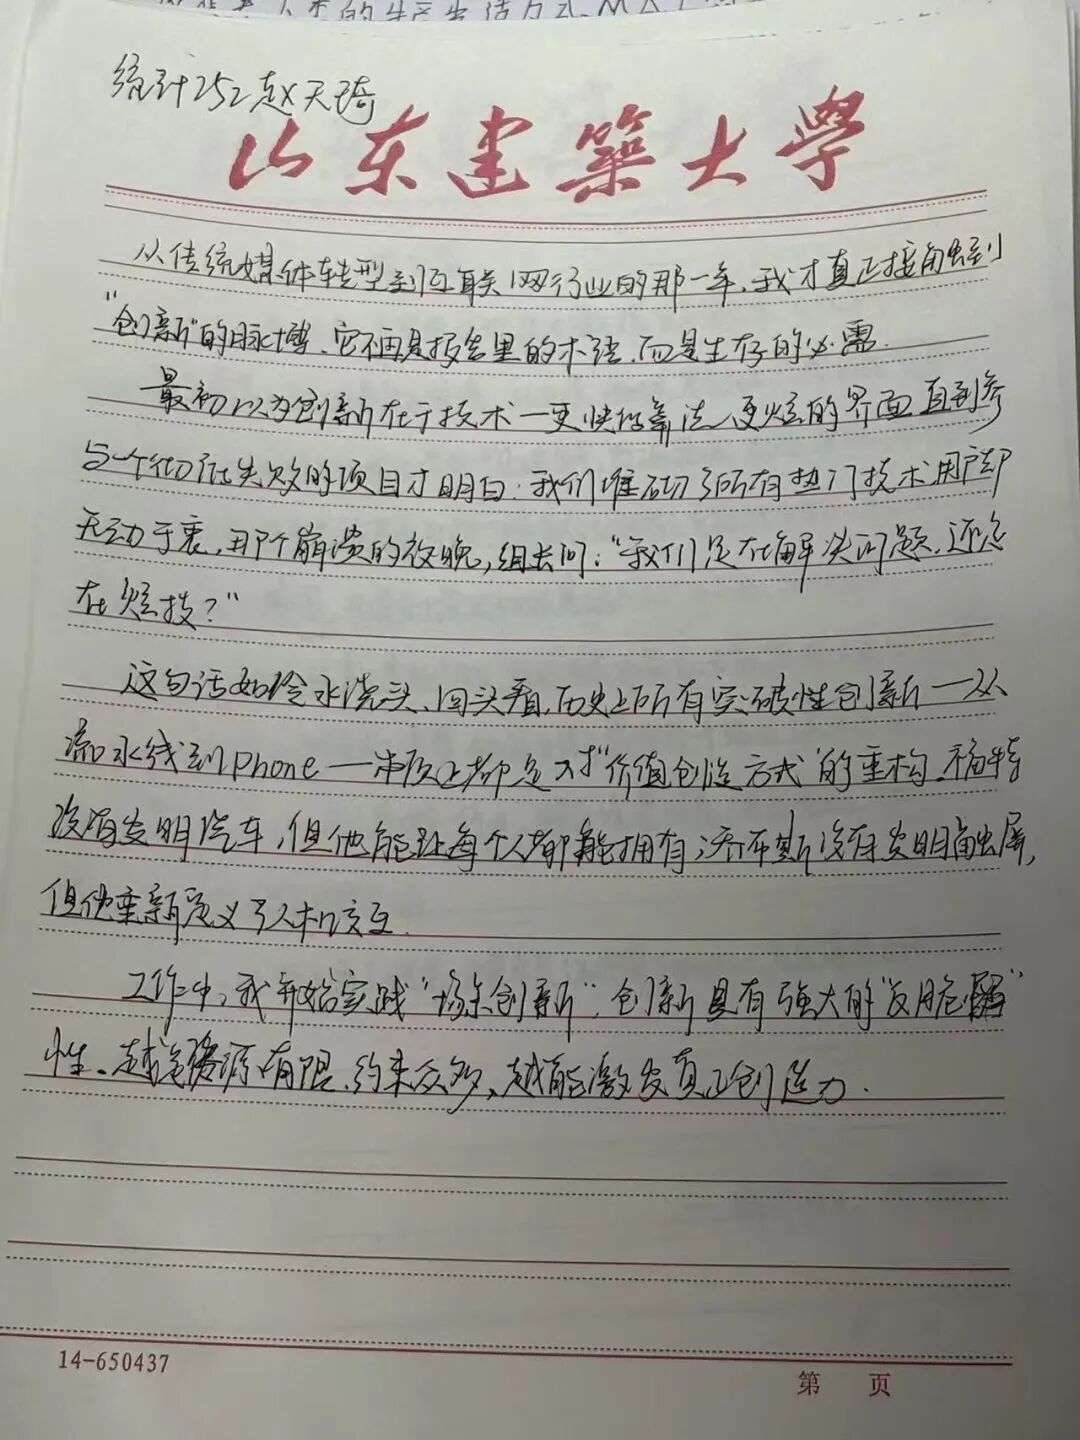 统计252赵天琦
山东建筑大学
从传统媒体转型到互联网行业的那一年,我才真正接触到
"创新"的脉搏、它不再是报告里的术语,而是生存的必需.
最初以为创新在于技术—更快的算法、更炫的界面直到参
与一个彻底失败的项目才明白:我们堆砌了所有热门技术用户却
无动于衷,那个崩溃的夜晚,组长问:"我们是在解决问题,还是
在炫技?"
这句话如冷水浇头、回头看,历史上所有突破性创新—从
流水线到iPhone—本质上都是对"价值创造方式"的重构、福特
没有发明汽车,但他能让每个人都能拥有;乔布斯没有发明触屏,
但他重新定义了人机交互.
工作中,我开始实践"场景创新".创新具有强大的"反脆弱"
性、越是资源有限、约束众多、越能激发真正创造力.
14-650437
第 页